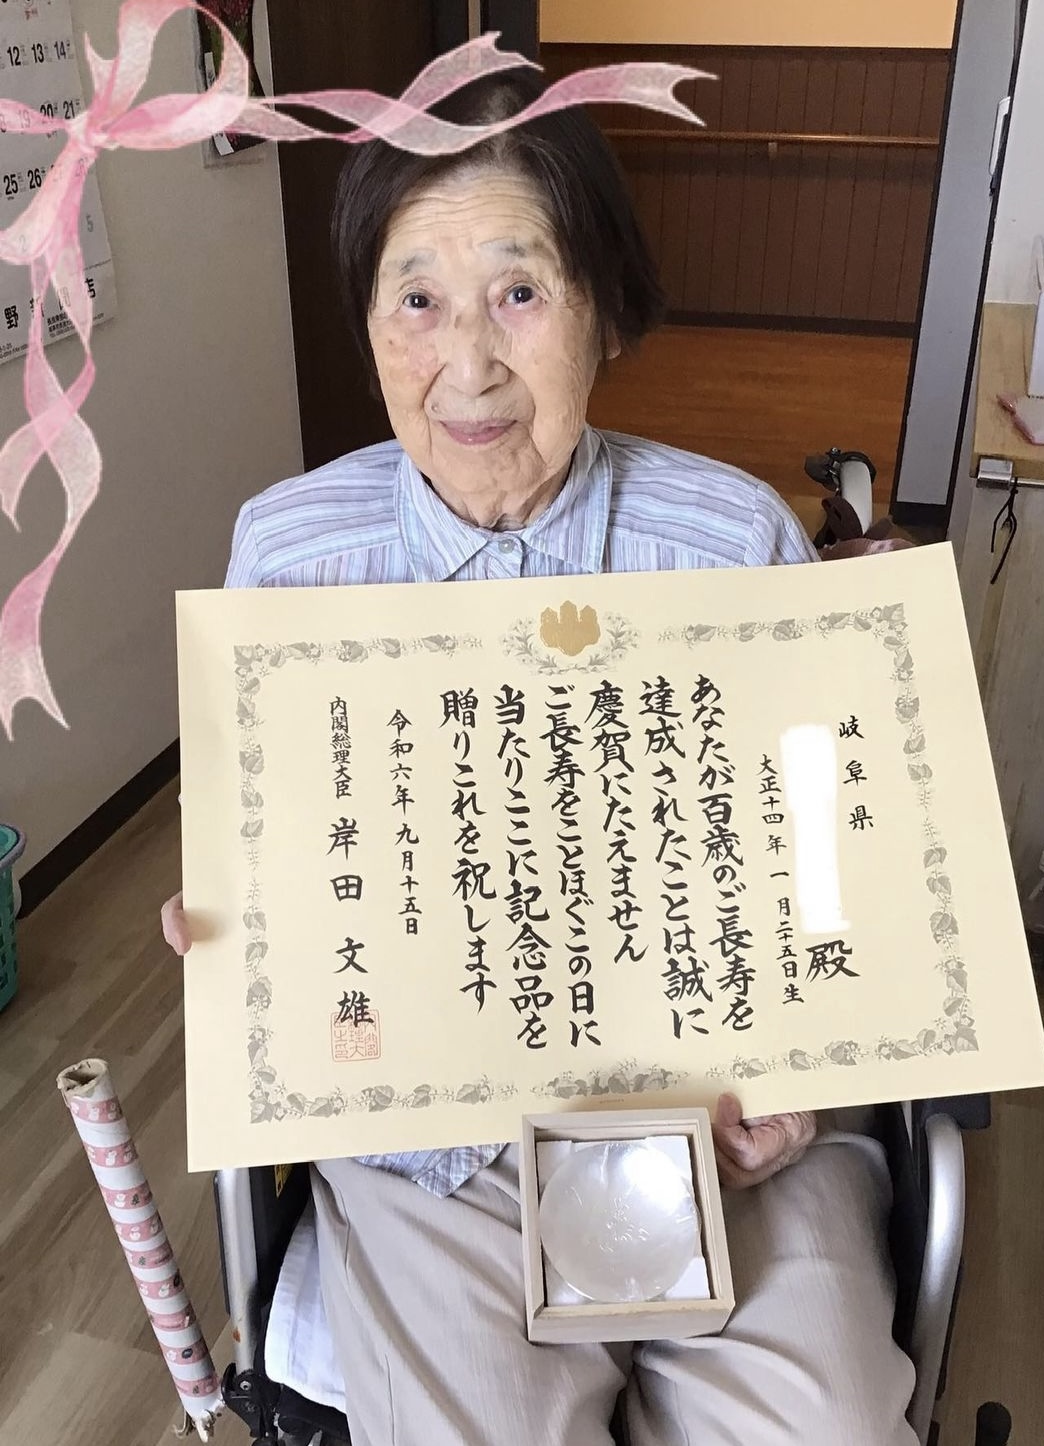 岐阜県
殿
大正十四年一月二十五日生
あなたが百歳のご長寿を
達成されたことは誠に
慶賀にたえません
ご長寿をことほぐこの日に
当たりここに記念品を
贈りこれを祝します
令和六年九月十五日
内閣総理大臣 岸田文雄
12 13 14
19 20 21
25 26
2
5
野
店